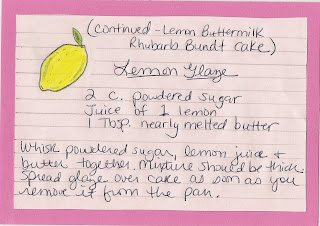 (Continued - Lemon Buttermilk
Rhubarb Bundt Cake)
Lemon Glaze
2 c. powdered sugar
Juice of 1 lemon
1 Tbsp. nearly melted butter
Whisk powdered sugar, lemon juice +
butter together. Mixture should be thick.
Spread glaze over cake as soon as you
remove it from the pan.